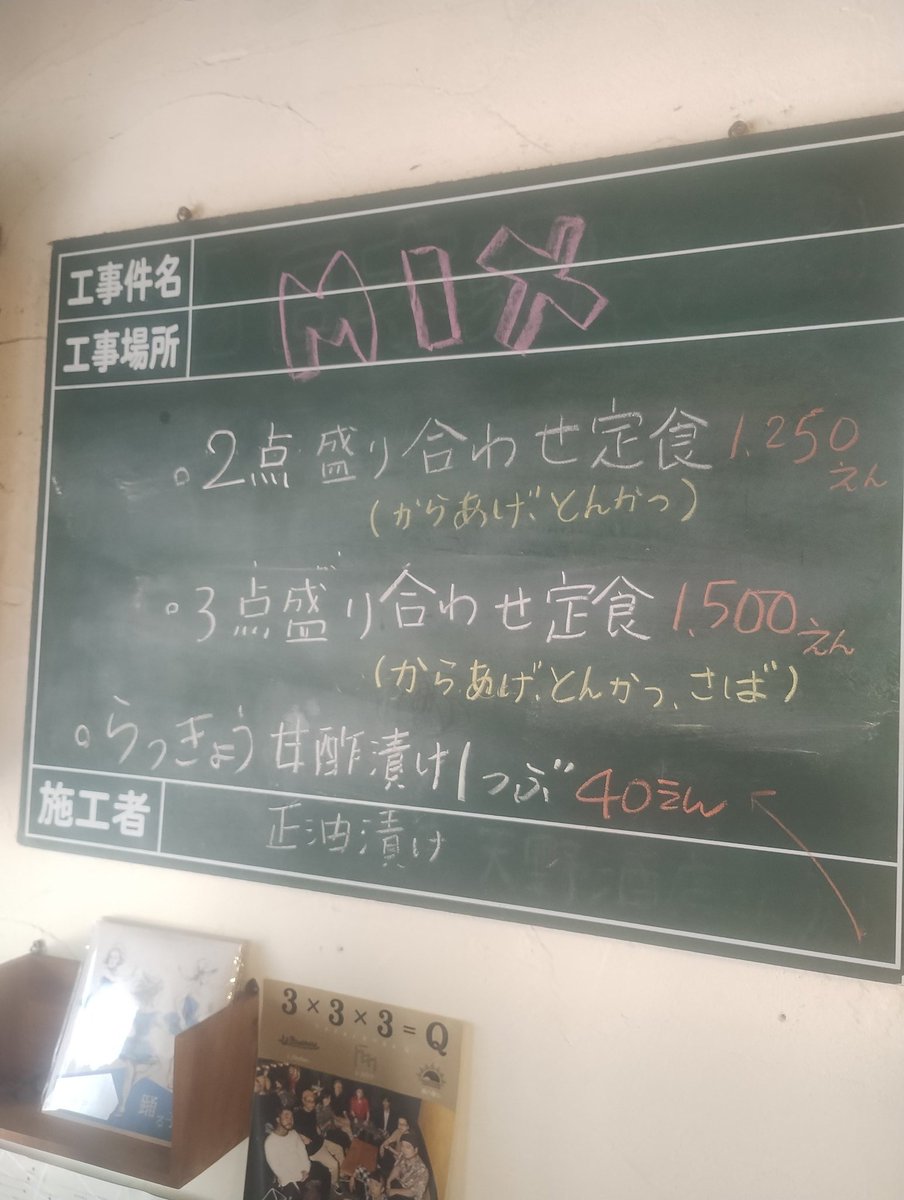 工事件名
工事場所
MIX
○2点盛り合わせ定食 1,250えん
(からあげ、とんかつ)
○3点盛り合わせ定食 1,500えん
(からあげ、とんかつ、さば)
○らっきょう甘酢漬け1つぶ 40えん
施工者
正油漬け
踊る
3×3×3=Q